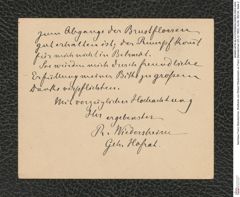 zum Abgange der Brustflossen
gut erhalten ist, der Rumpf komt
für mich nicht in Betracht.
Sie würden mich durch freundliche
Erfüllung meiner Bitte zu großem
Danke verpflichten.
Mit vorzüglicher Hochachtung
Ihr ergebenster
R. Wiedersheim
Geh. Hofrat.